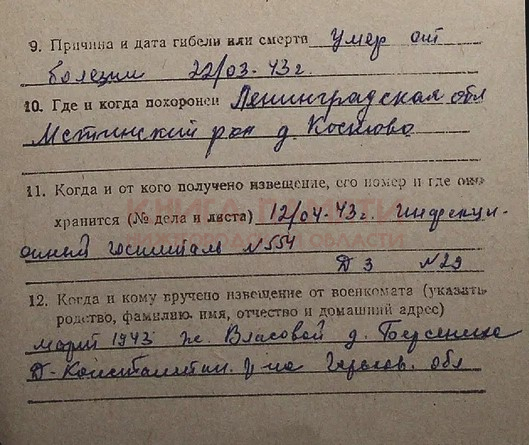 9. Причина и дата гибели или смерти умер от
болезни 22/03-43г.
10. Где и когда похоронен Ленинградская обл
Мстинский рон д.
11. Когда и от кого получено извещение, его номер и где оно
хранится (№ дела и листа) 12/04-43г. Инфекци-
онный госпиталь № 554
Д 3 №29
12. Когда и кому вручено извещение от военкомата (указать
родство, фамилию, имя, отчество и домашний адрес)
март 1943 ж. Власовой д.
Д-Константин. р-на Горьков. обл
КНИГА ПАМЯТИ
ОБЛАСТИ